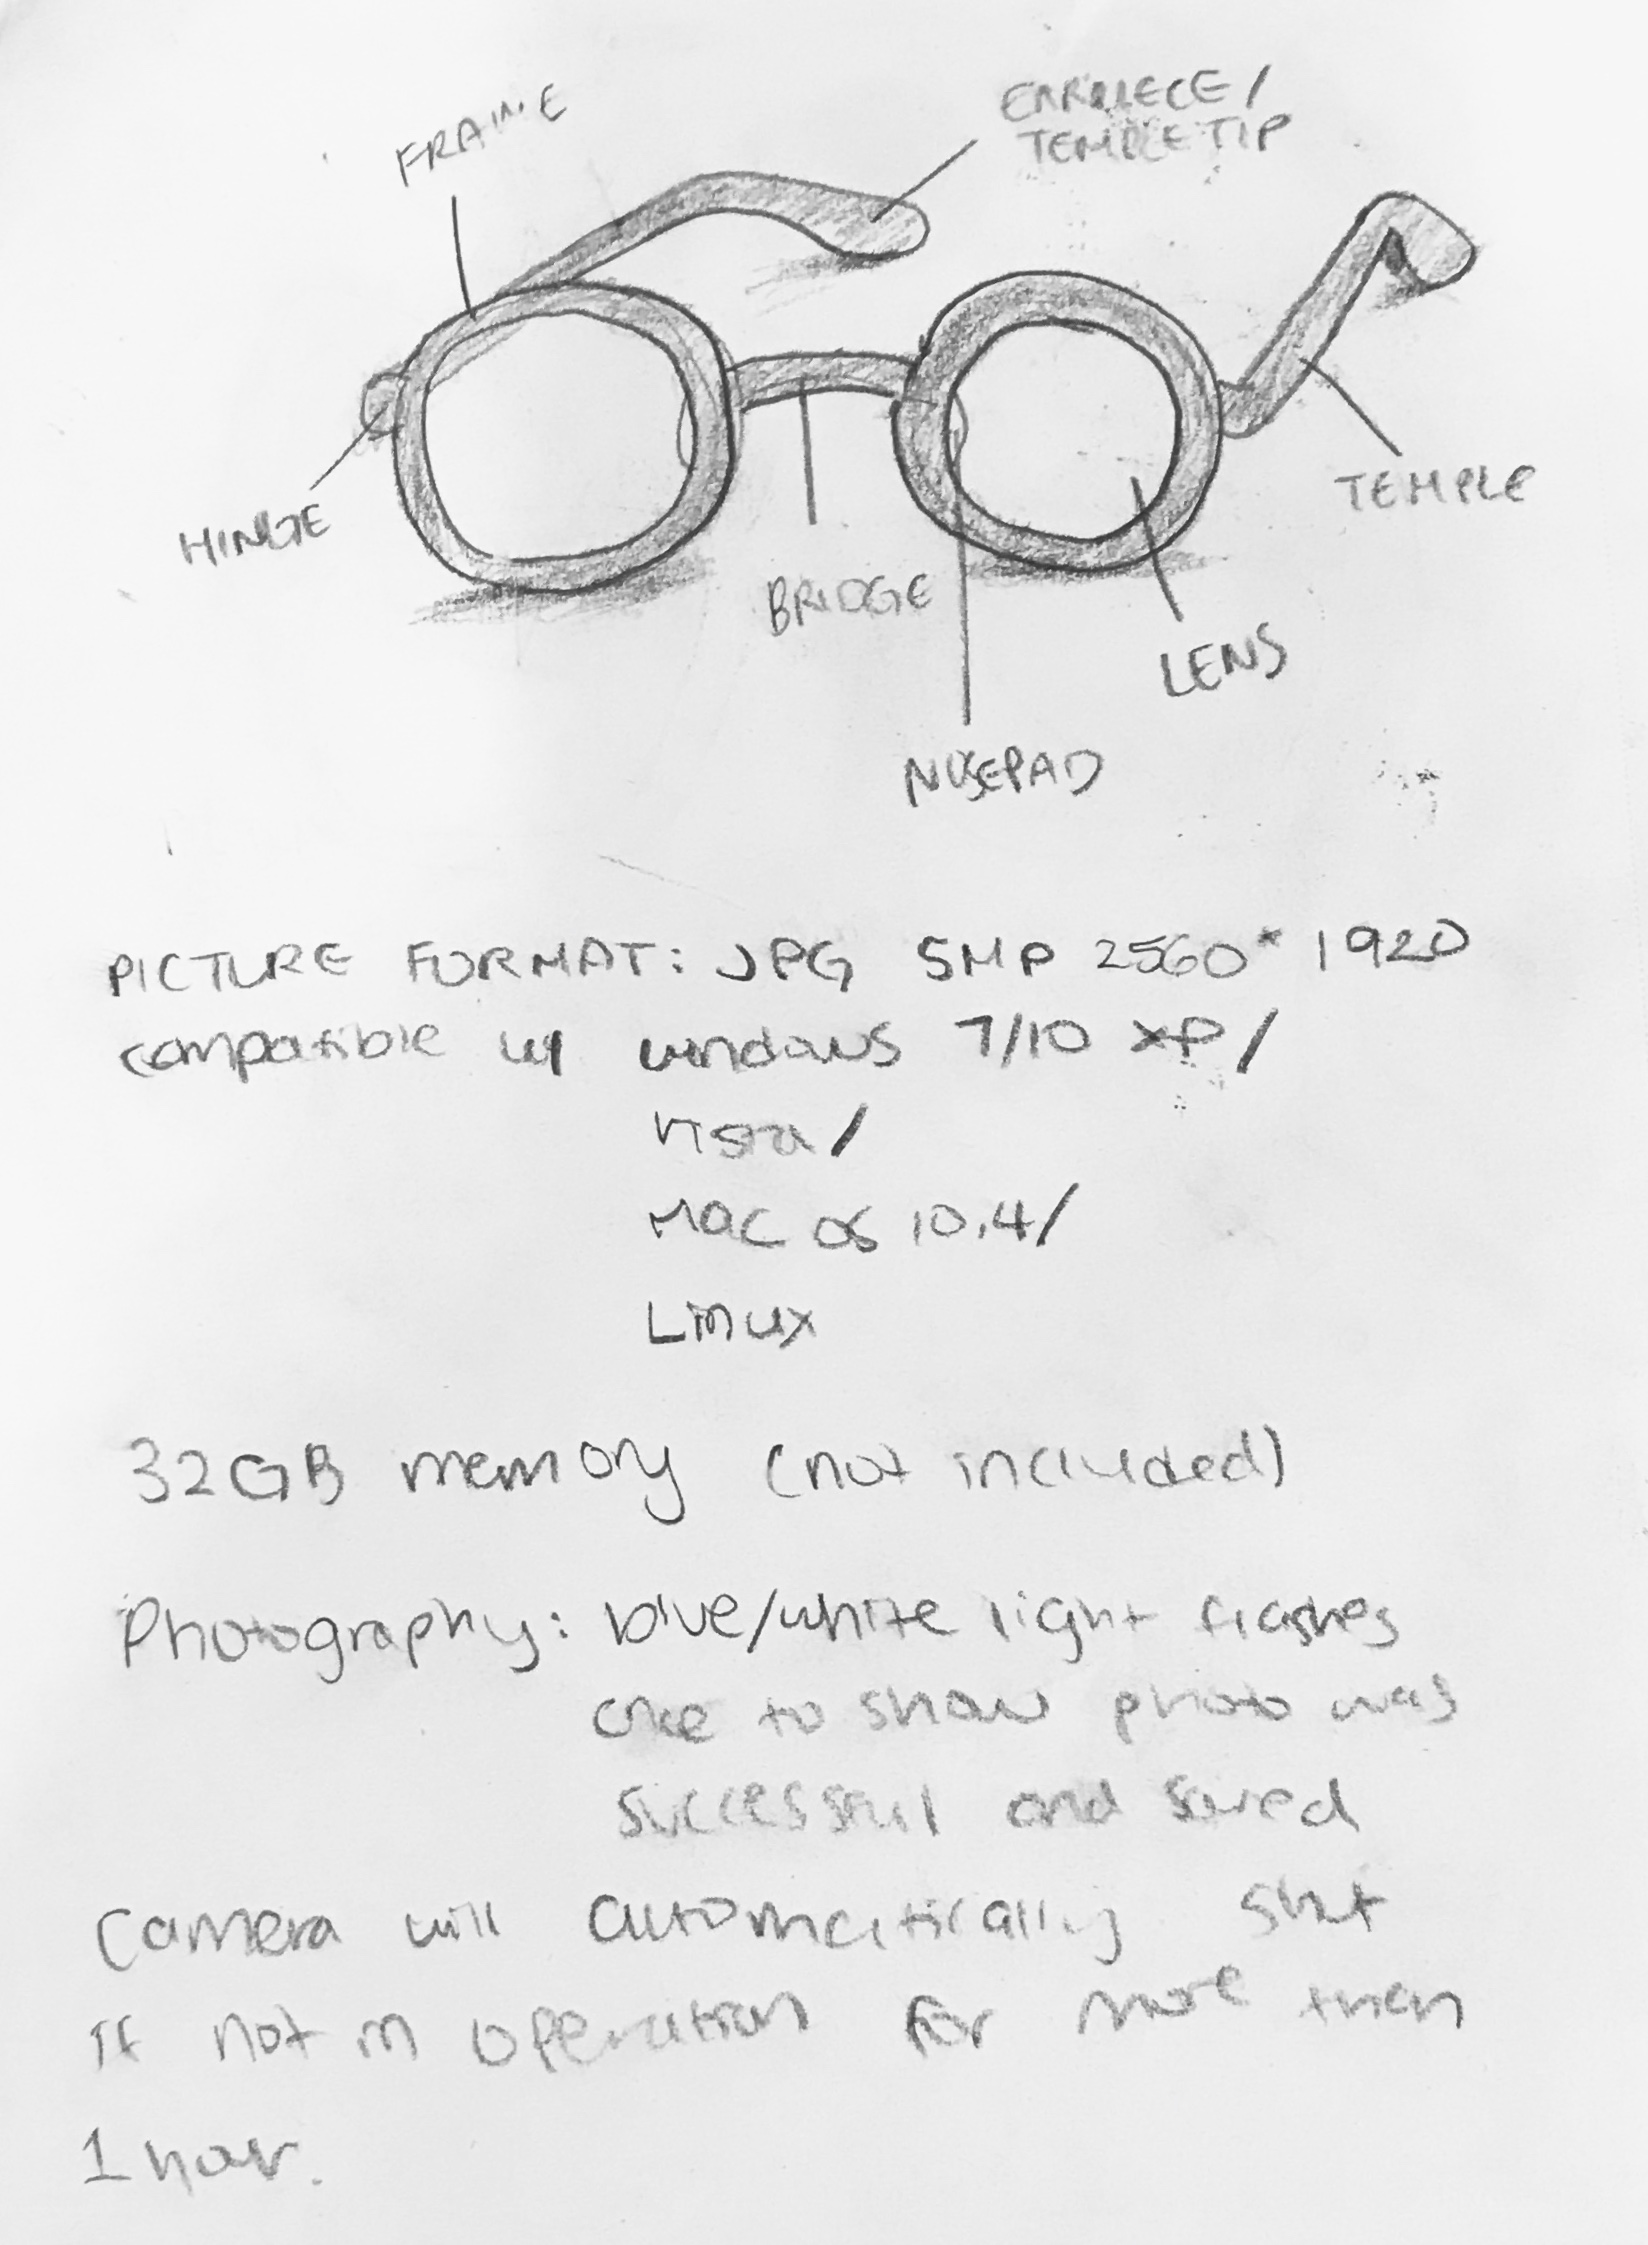 FRAME
EARPIECE /
TEMPLE TIP
HINGE
TEMPLE
BRIDGE
LENS
NOSEPAD
PICTURE FORMAT: JPG 5MP 2560* 1920
compatible w/ windows 7/10 XP/
vista/
MAC OS 10.4/
Linux
32GB memory (not included)
Photography: blue/white light flashes
once to show photo was
successful and saved
Camera will automatically shut
If not in operation for more then
1 hour.